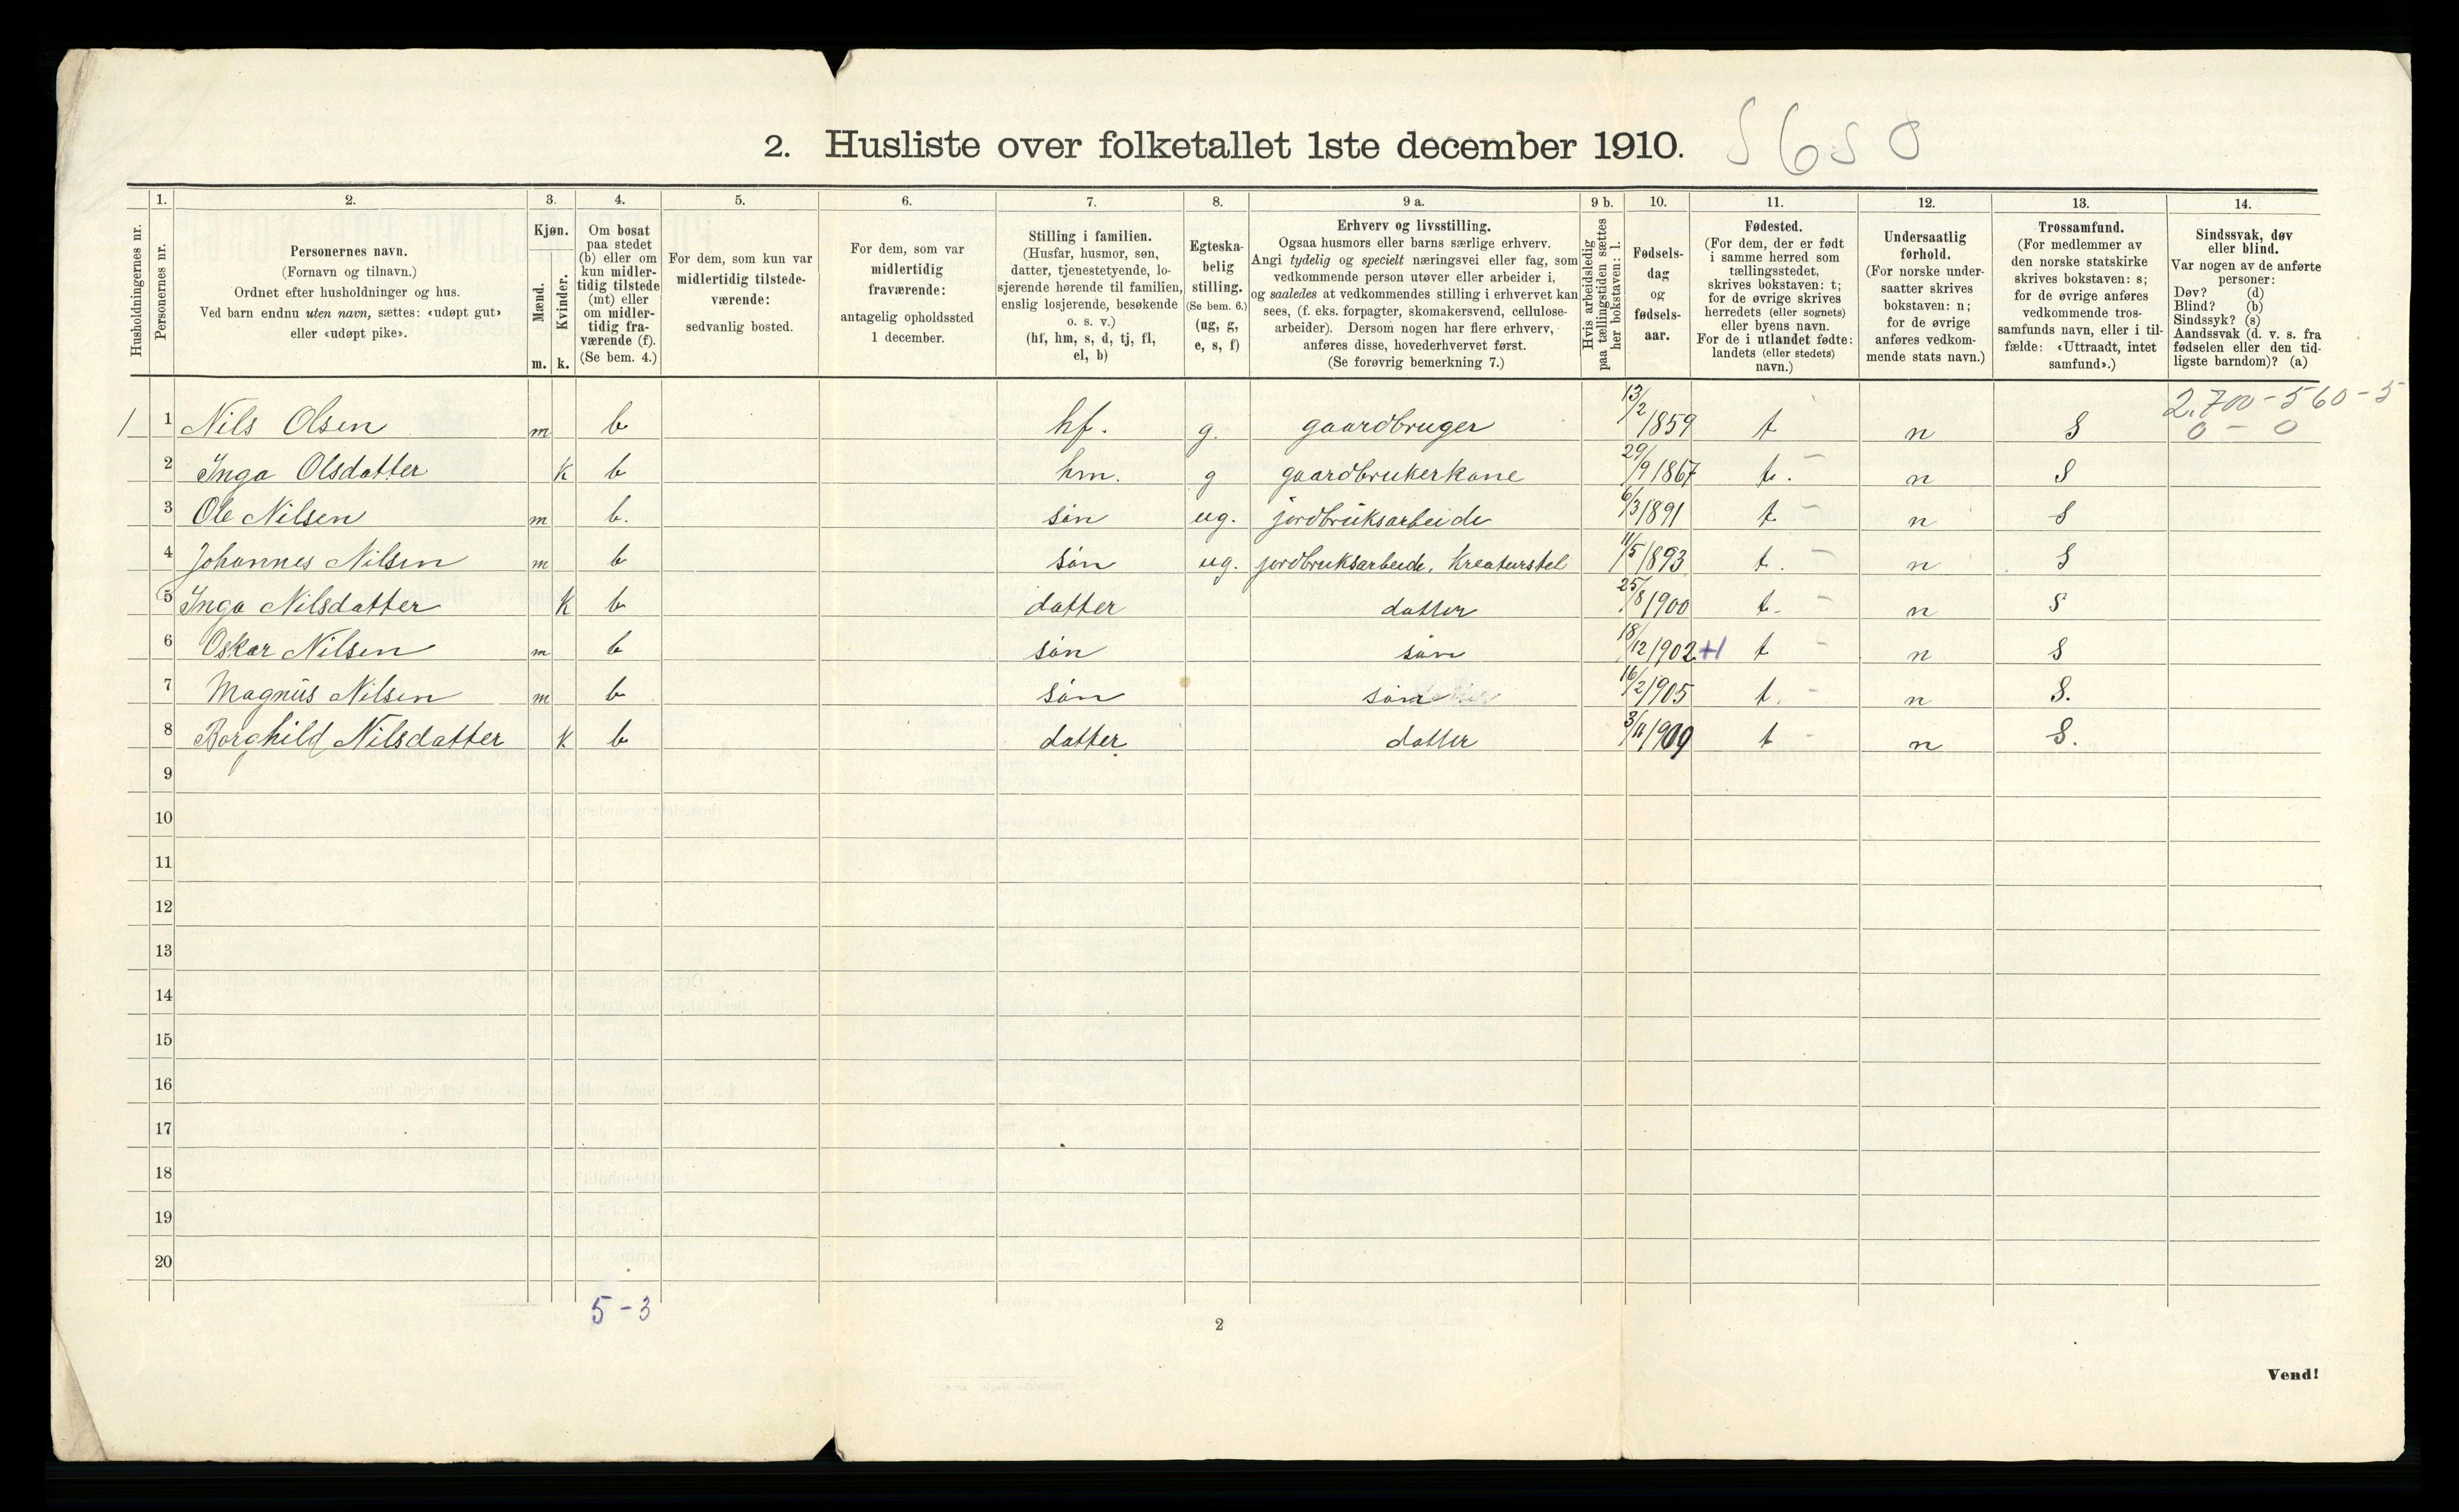 2. Husliste over folketallet 1ste december 1910.
Husholdningernes nr.
1.
Personernes nr.
2.
Personernes navn.
(Fornavn og tilnavn.)
Ordnet efter husholdninger og hus.
Ved barn endnu uten navn, sættes: «udøpt gut»
eller «udøpt pike».
3.
Kjøn.
Mænd.
Kvinder.
m. k.
4.
Om bosat
paa stedet
(b) eller om
kun midler-
tidig tilstede
(mt) eller
om midler-
tidig fra-
værende (f).
(Se bem. 4.)
5.
For dem, som kun var
midlertidig tilstede-
værende:
sedvanlig bosted.
6.
For dem, som var
midlertidig
fraværende:
antagelig opholdssted
1 december.
7.
Stilling i familien.
(Husfar, husmor, søn,
datter, tjenestetyende, lo-
sjerende hørende til familien,
enslig losjerende, besøkende
o. s. v.)
(hf, hm, s, d, tj, fl,
el, b)
8.
Egteska-
belig
stilling.
(Se bem. 6.)
(ug, g,
e, s, f)
9 a.
Erhverv og livsstilling.
Ogsaa husmors eller barns særlige erhverv.
Angi tydelig og specielt næringsvei eller fag, som
vedkommende person utøver eller arbeider i,
og saaledes at vedkommendes stilling i erhvervet kan
sees, (f. eks. forpagter, skomakersvend, cellulose-
arbeider). Dersom nogen har flere erhverv,
anføres disse, hovederhvervet først.
(Se forøvrig bemerkning 7.)
9 b.
Hvis arbeidsledig
paa tællingstiden sættes
her bokstaven: l.
10.
Fødsels-
dag
og
fødsels-
aar.
11.
Fødested.
(For dem, der er født
i samme herred som
tællingsstedet,
skrives bokstaven: t;
for de øvrige skrives
herredets (eller sognets)
eller byens navn.
For de i utlandet fødte:
landets (eller stedets)
navn.)
12.
Undersaatlig
forhold.
(For norske under-
saatter skrives
bokstaven: n;
for de øvrige
anføres vedkom-
mende stats navn.)
13.
Trossamfund.
(For medlemmer av
den norske statskirke
skrives bokstaven: s;
for de øvrige anføres
vedkommende tros-
samfunds navn, eller i til-
fælde: «Uttraadt, intet
samfund».)
14.
Sindssvak, døv
eller blind.
Var nogen av de anførte
personer:
Døv? (d)
Blind? (b)
Sindssyk? (s)
Aandssvak (d. v. s. fra
fødselen eller den tid-
ligste barndom)? (a)
2.700-560-5
0 - 0
1 1 Nils Olsen m b hf. g. gaardbruger 13/2 1859 t n S
2 Inga Olsdatter k b hm. g gaardbrukerkone 29/9 1867 t. - n S
3 Ole Nilsen m b. søn ug. jordbruksarbeide 6/3 1891 t - n S
4 Johannes Nilsen m b søn ug. jordbruksarbeide, Kreaturstel 11/5 1893 t. - n S
5 Inga Nilsdatter k b datter datter 25/8 1900 t. - n S
6 Oskar Nilsen m b søn søn 18/12 1902 +1 t - n S
7 Magnus Nilsen m b søn søn 16/2 1905 t. - n S.
8 Borghild Nilsdatter k b datter datter 3/11 1909 t - n S.
9
10
11
12
13
14
15
16
17
18
19
20
5 - 3
2
Vend!